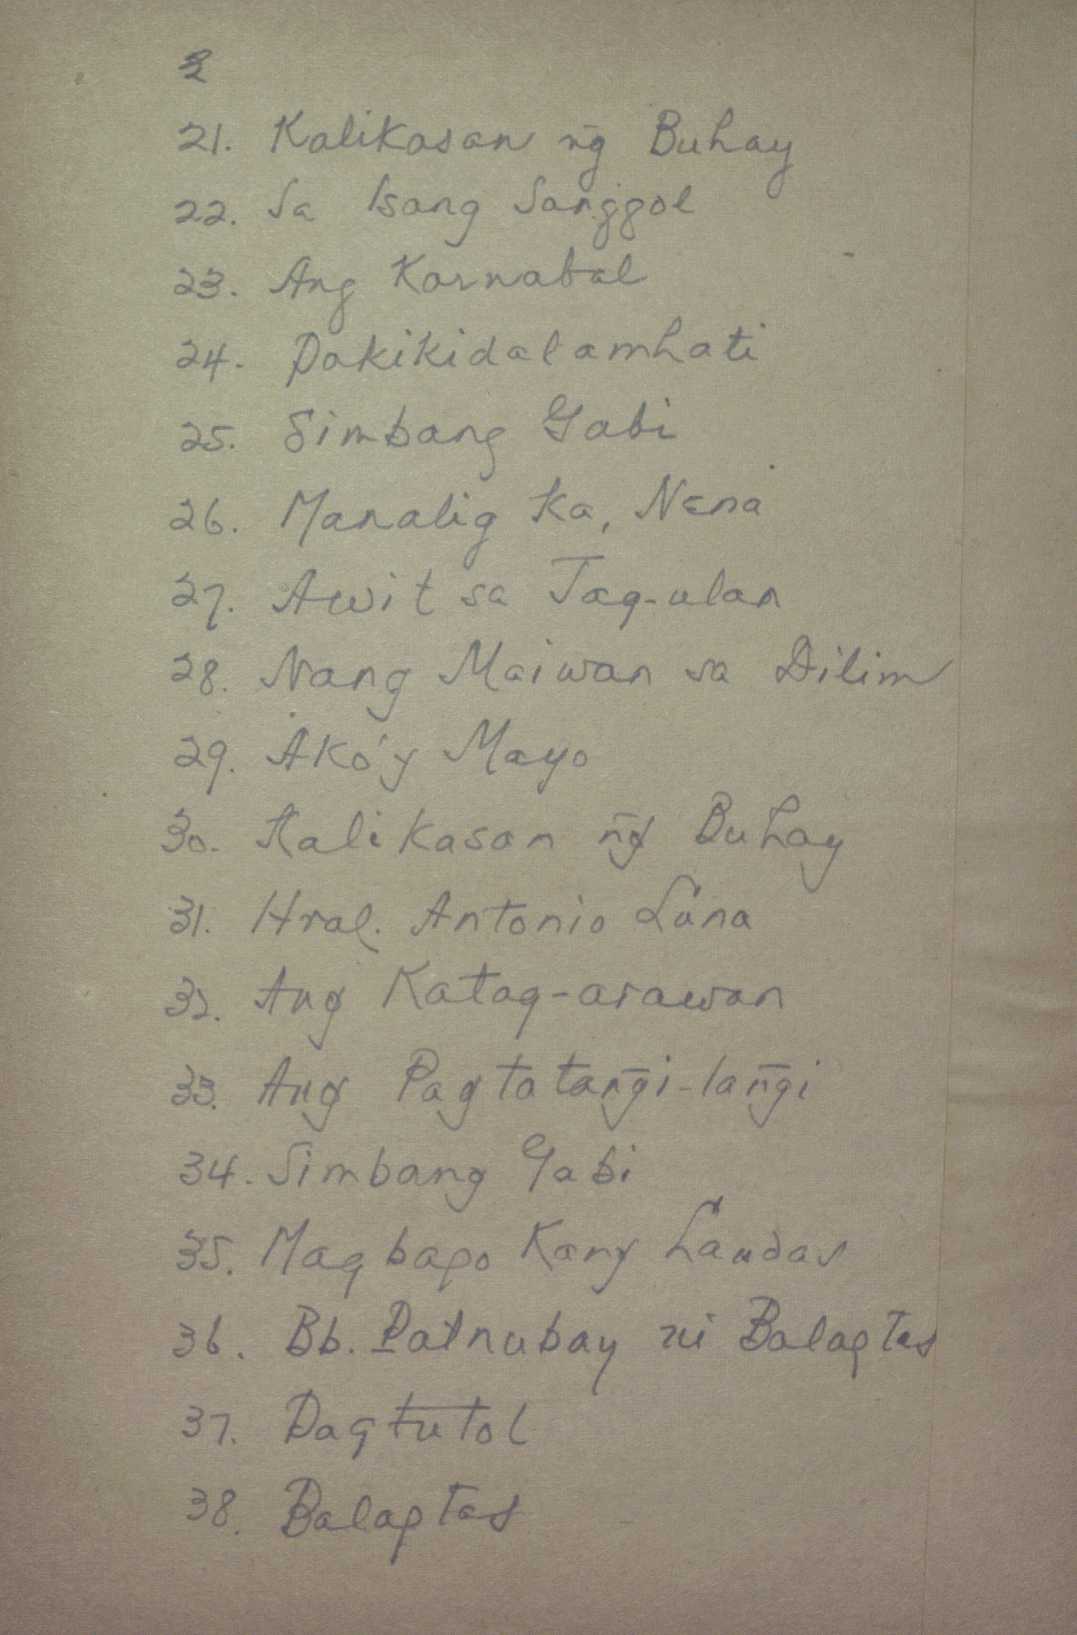 2
21. Kalikasan ng̃ Buhay
22. Sa Isang Sanggol
23. Ang Karnabal
24. Pakikidalamhati
25. Simbang Gabi
26. Manalig Ka, Nena
27. Awit sa Tag-ulan
28. Nang Maiwan sa Dilim
29. Ako'y Mayo
30. Kalikasan ng̃ Buhay
31. Hral. Antonio Luna
32. Ang Katag-arawan
33. Ang Pagtatang̃i-tang̃i
34. Simbang Gabi
35. Magbago Kang Landas
36. Bb. Patnubay ni Balagtas
37. Pagtutol
38. Balagtas